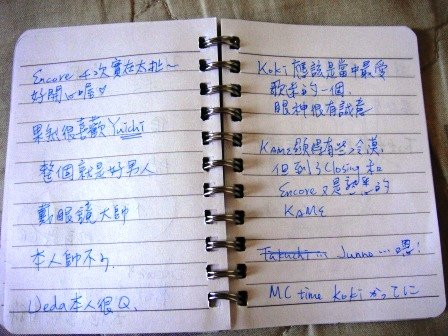 Encore 4次實在太扯~
好開心喔♡
果然很喜歡Yuichi
整個就是好男人
戴眼鏡大帥
本人帥不
Ueda本人很Q、
Koki應該是當中最愛
歌迷的一個、
眼神很有誠意
KAME顯得有些冷漠、
但到了Closing和
Encore又是熟悉的
KAME
Taguchi in Junno...
MC time Koki かってに